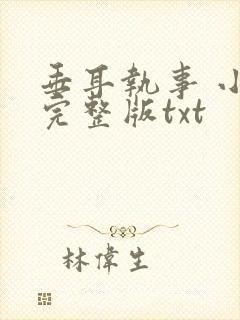 垂耳執事 小
完整版txt
林偉生